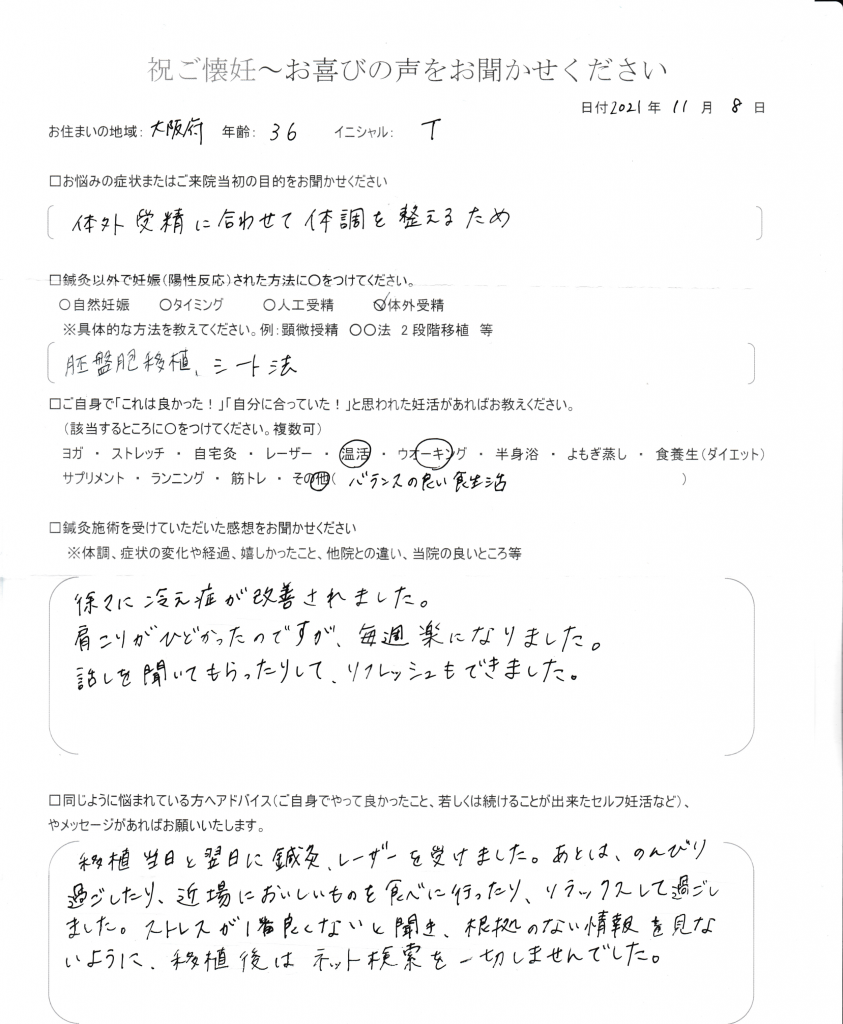 祝ご懐妊～お喜びの声をお聞かせください
日付2021年 11月 8日
お住まいの地域: 大阪府 年齢: 36 イニシャル: T
□お悩みの症状またはご来院当初の目的をお聞かせください
体外受精に合わせて体調を整えるため
□鍼灸以外で妊娠(陽性反応)された方法に〇をつけてください。
〇自然妊娠 〇タイミング 〇人工受精 〇体外受精
※具体的な方法を教えてください。例:顕微授精 〇〇法 2段階移植 等
胚盤胞移植、シート法
□ご自身で「これは良かった!」「自分に合っていた!」と思われた妊活があればお教えください。
(該当するところに〇をつけてください。複数可)
ヨガ ・ ストレッチ ・ 自宅灸 ・ レーザー ・ 温活 ・ ウオーキング ・ 半身浴 ・ よもぎ蒸し ・ 食養生(ダイエット)
サプリメント ・ ランニング ・ 筋トレ ・ その他( バランスの良い食生活 )
□鍼灸施術を受けていただいた感想をお聞かせください
※体調、症状の変化や経過、嬉しかったこと、他院との違い、当院の良いところ等
徐々に冷え症が改善されました。
肩こりがひどかったのですが、毎週楽になりました。
話しを聞いてもらったりして、リフレッシュもできました。
□同じように悩まれている方へアドバイス(ご自身でやって良かったこと、若しくは続けることが出来たセルフ妊活など)、
やメッセージがあればお願いいたします。
移植当日と翌日に鍼灸、レーザーを受けました。あとは、のんびり
過ごしたり、近場においしいものを食べに行ったり、リラックスして過ごし
ました。ストレスが1番良くないと聞き、根拠のない情報を見な
いように、移植後はネット検索を一切しませんでした。